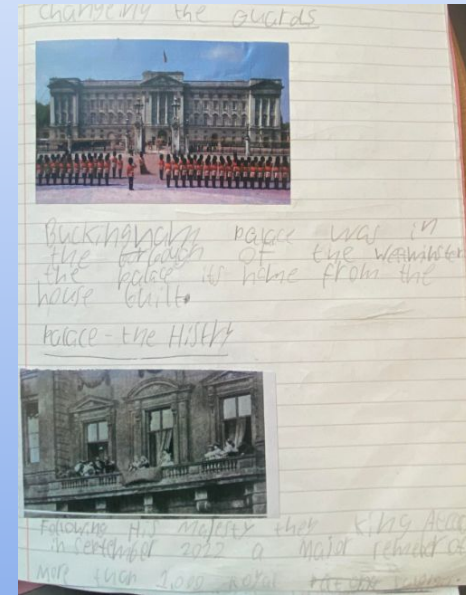 Changing the Guards
Buckingham palace was in
the borough of the Westminster
the palace its home from the
house built.
Palace - the Histry
Following His Majesty they King
in September 2022 a Major
more than 1,000